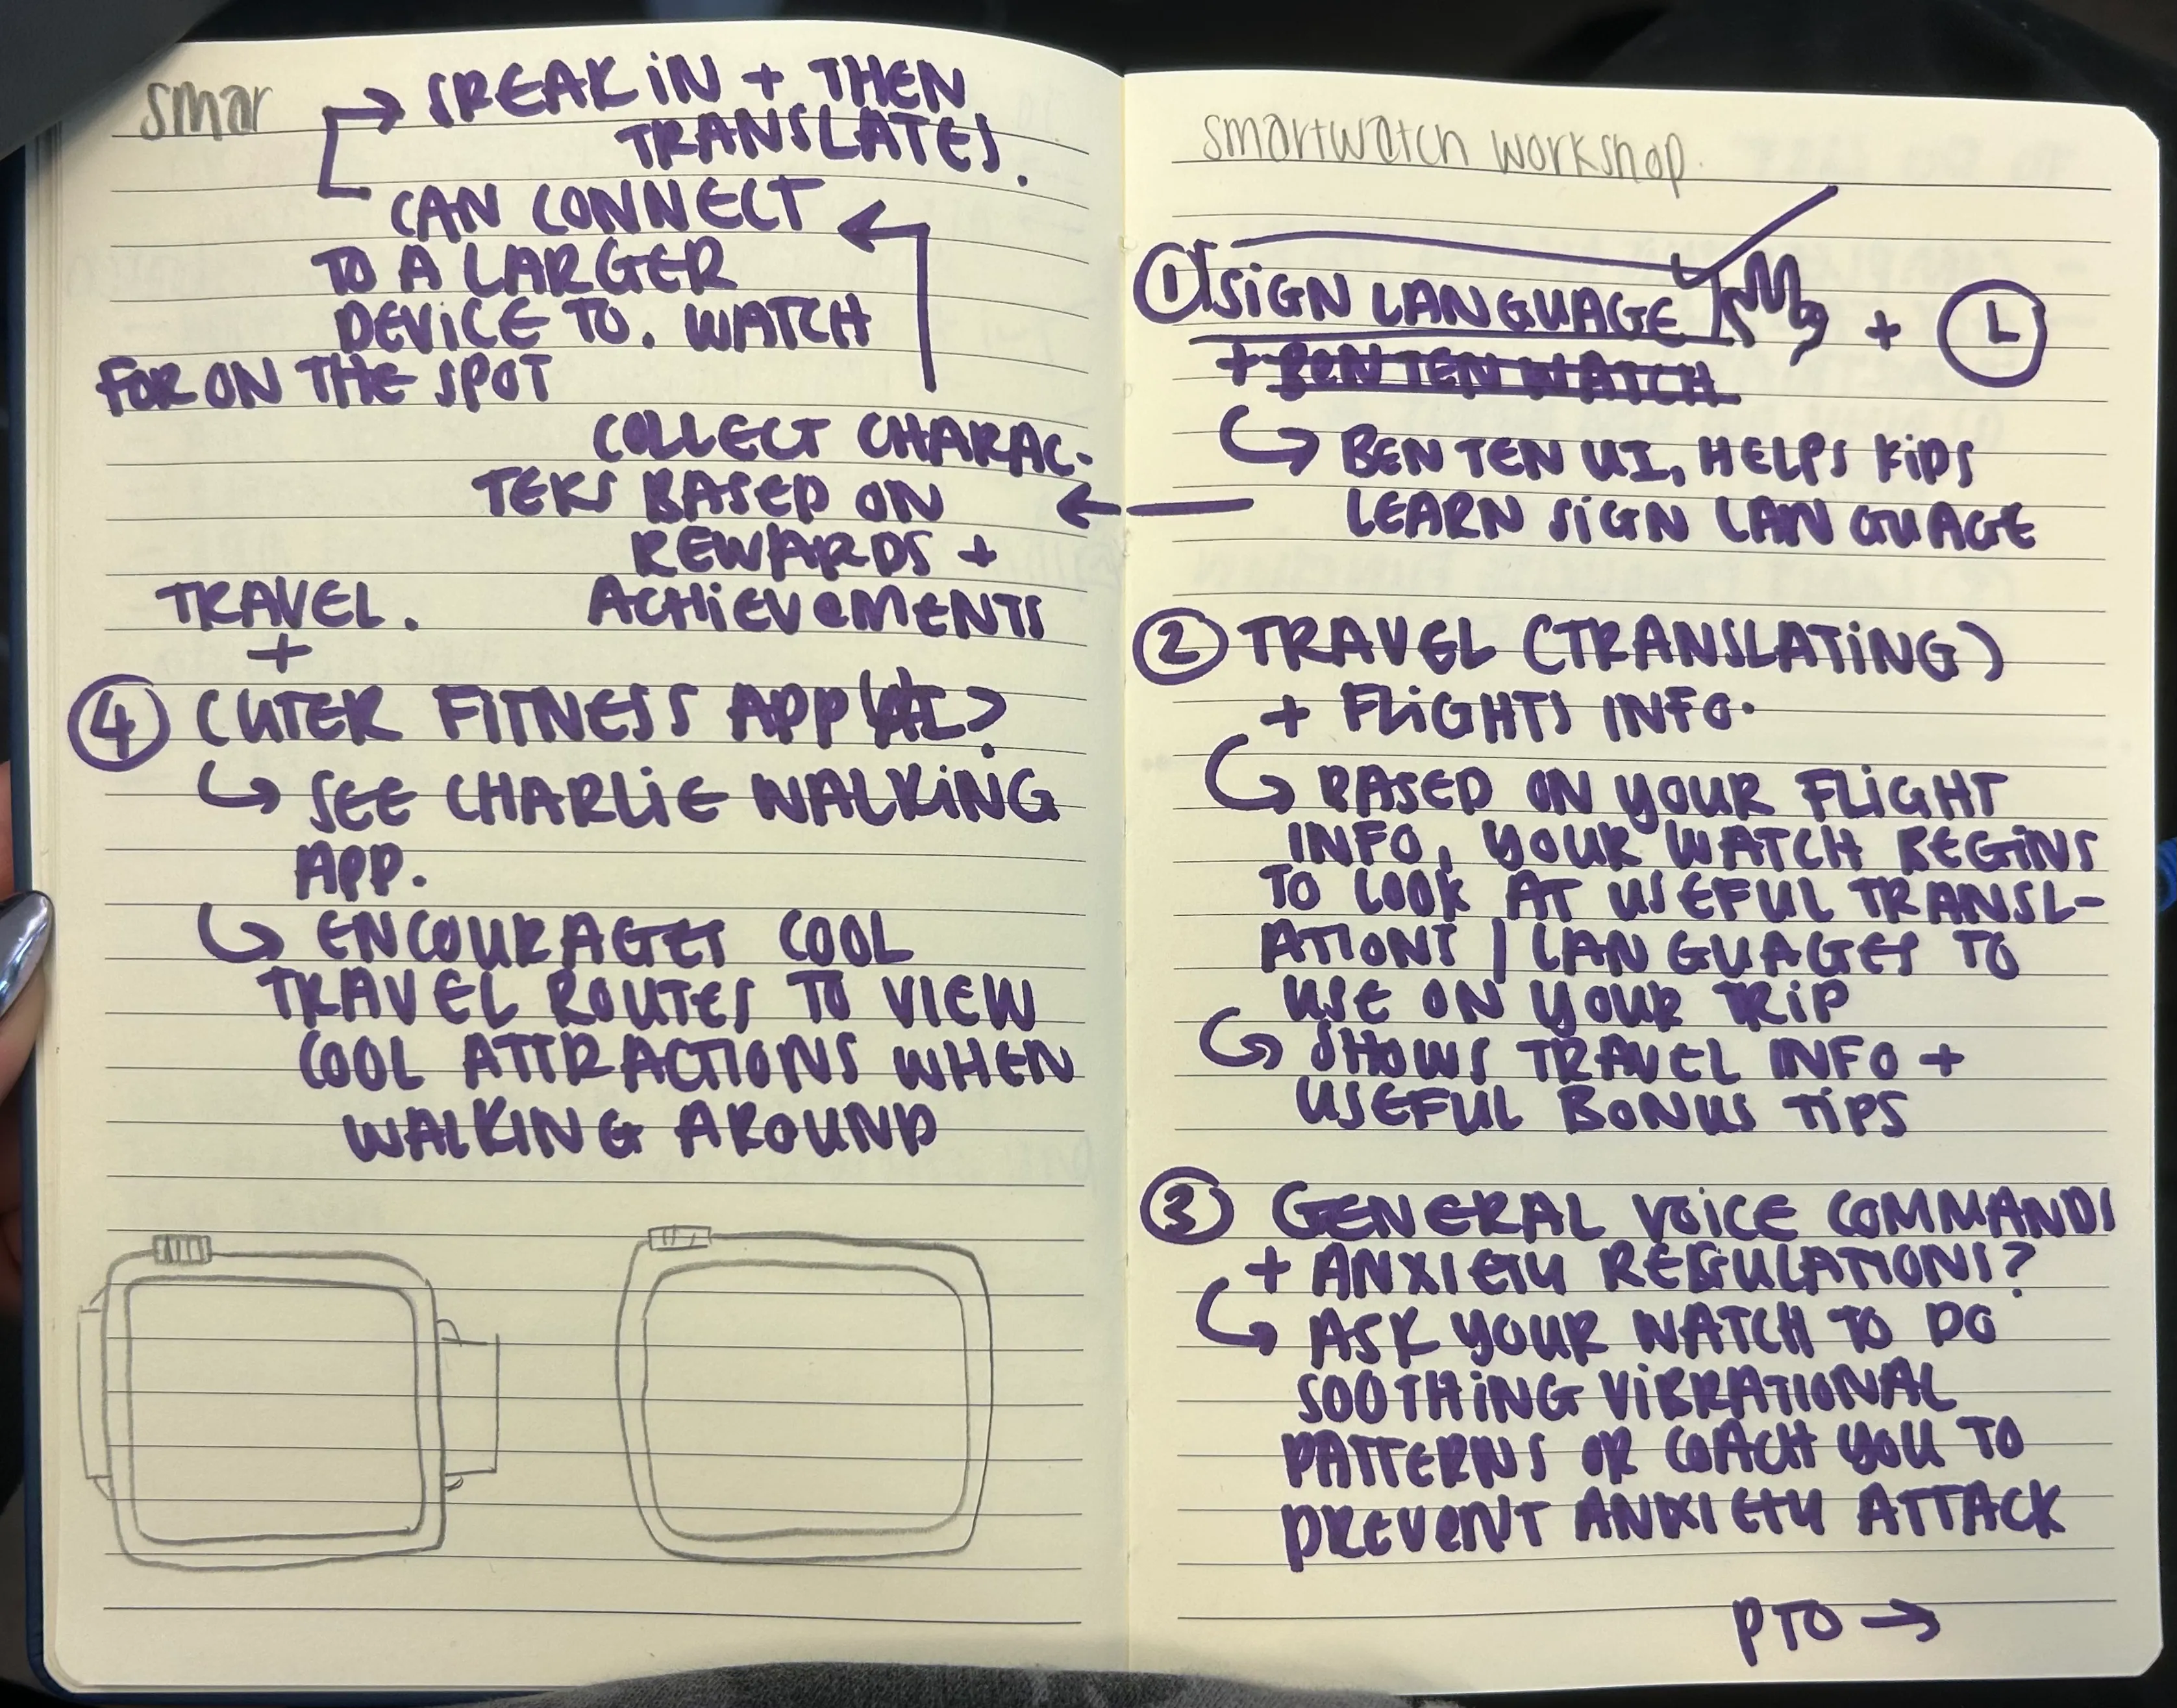 smar
SPEAK IN + THEN
TRANSLATES.
CAN CONNECT
TO A LARGER
DEVICE TO. WATCH
FOR ON THE SPOT
COLLECT CHARAC-
TERS BASED ON
REWARDS +
ACHIEVEMENTS
TRAVEL.
+
④ CUTER FITNESS APP ?
↳ SEE CHARLIE WALKING
APP.
↳ ENCOURAGES COOL
TRAVEL ROUTES TO VIEW
COOL ATTRACTIONS WHEN
WALKING AROUND
smartwatch workshop.
① SIGN LANGUAGE +
+ BEN TEN WATCH
↳ BEN TEN UI, HELPS KIDS
LEARN SIGN LANGUAGE
② TRAVEL (TRANSLATING)
+ FLIGHTS INFO.
↳ BASED ON YOUR FLIGHT
INFO, YOUR WATCH BEGINS
TO LOOK AT USEFUL TRANSL-
ATIONS / LANGUAGES TO
USE ON YOUR TRIP
↳ SHOWS TRAVEL INFO +
USEFUL BONUS TIPS
③ GENERAL VOICE COMMANDS
+ ANXIETY REGULATIONS?
↳ ASK YOUR WATCH TO DO
SOOTHING VIBRATIONAL
PATTERNS OR COACH YOU TO
PREVENT ANXIETY ATTACK
PTO →